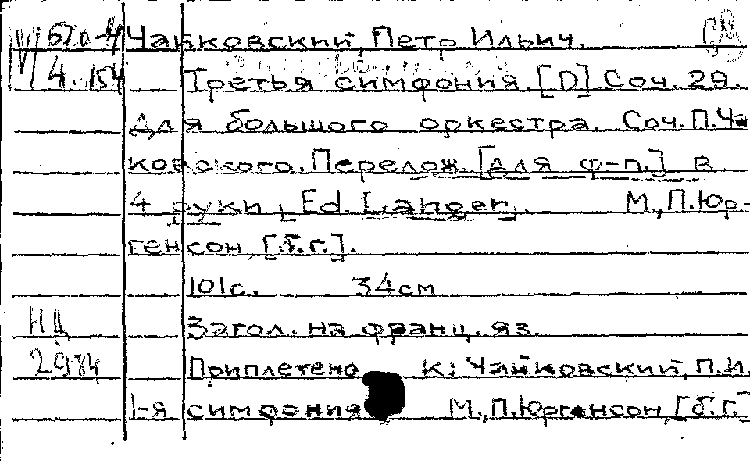 Чайковский, Петр Ильич.
4.154 Третья симфония. [D] Соч. 29.
Для большого оркестра. Соч. П. Чай
ковского. Перелож. [для ф-п.] в
4 руки [Ed. Langer]. М., П. Юр-
генсон, [б.г.].
101с. 34см
НЦ Загол. на франц. яз.
Приплетено к: Чайковский, П.И.
1-я симфония М., П. Юргенсон, [б.г.]